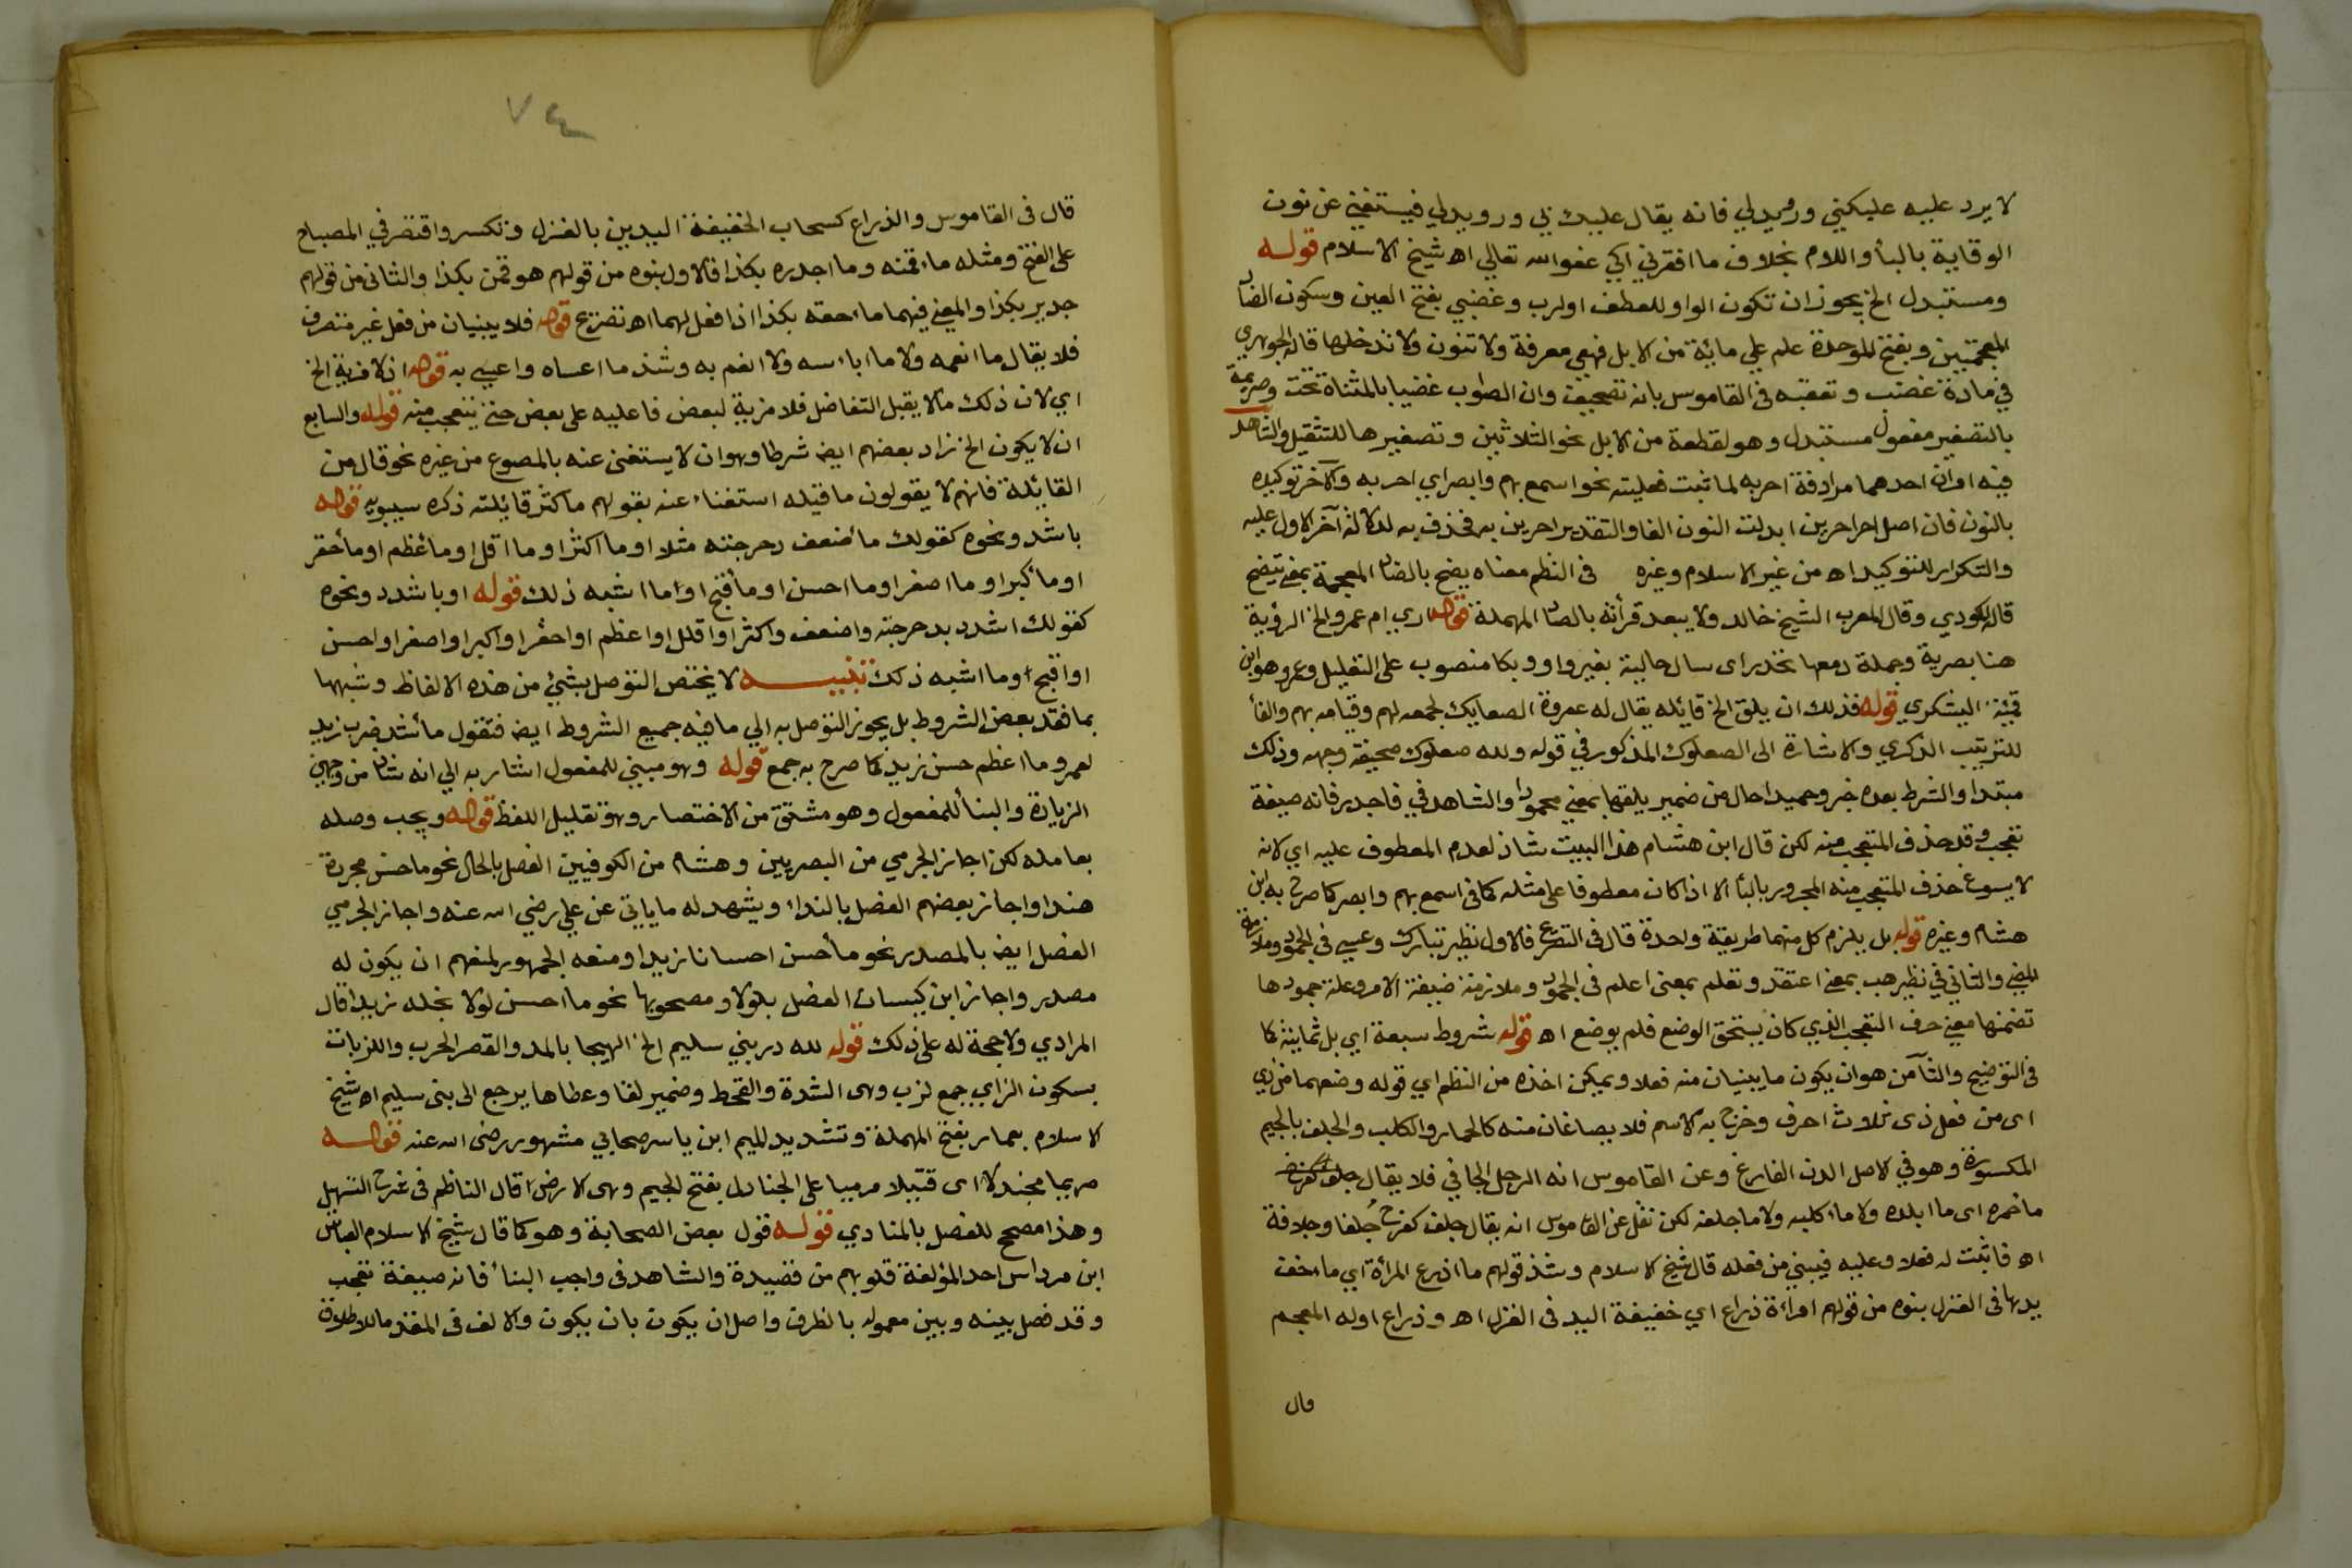 لا يرد عليه عليكني ورويدلي فانه يقال عليك بي ورويدلي فيستغني عن نون
الوقاية بالبأ واللام بخلاف ما افقرني الي عفو الله تعالي اه شيخ الاسلام قوله
ومستبدل الخ يجوز ان تكون الواو للعطف او لرب وغضبي بفتح الغين وسكون الضاد
المعجمتين وبفتح الموحدة علم علي مائة من الابل فهي معرفة ولا تنون ولا تدخلها قاله الجوهري
في مادة غضب وتعقبه في القاموس بانه تصحيف وان الصواب غضيا بالمثناة تحت وصريمة
بالتصغير مفعول مستبدل وهو لقطعة من الابل نحو الثلاثين وتصغيرها للتقليل والشاهد
فيه اوان احدهما مرادفة احر به لما ثبت فعليته نحو اسمع بهم وابصر اي احر به والآخر توكيده
بالنون فان اصل احرا احرين ابدلت النون الفا والتقدير احرين به فحذف به لدلالة آخر الاول عليه
والتكرار للتوكيد اه من غير الاسلام وغيره في النظم معناه يضح بالضاد المعجمة بمعني يتضح
قاله المكودي وقال المعرب الشيخ خالد ولا يبعد قرأته بالصاد المهملة قوله اري ام عمرو الخ الرؤية
هنا بصرية وجملة دمعها تحدر اى سال حالية بغير واو وبكا منصوب على التعليل وعمرو هو ابن
قميئة اليشكري قوله فذلك ان يلق الخ قائله يقال له عروة الصعاليك لجمعه لهم وقيامه بهم والفأ
للترتيب الذكري والاشارة الى الصعلوك المذكور في قوله ولله صعلوك صحيفة وجهه وذلك
مبتدا والشرط بعده خبر وحميدا حال من ضمير يلقها بمعني محمودا والشاهد في فاجدر فانه صيغة
تعجب وقد حذف المتعجب منه لكن قال ابن هشام هذا البيت شاذ لعدم المعطوف عليه اي لانه
لا يسوغ حذف المتعجب منه المجرور بالبأ الا اذا كان معطوفا على مثله كما في اسمع بهم وابصر كما صرح به ابن
هشام وغيره قوله بل يلزم كل منهما طريقة واحدة قال في التصريح فالاول نظير تبارك وعسي في الجمود وملازمة
المضي والثاني في نظير هب بمعني اعتقد وتعلم بمعنى اعلم في الجمود وملازمة صيغة الامر وعلة جمودها
تضمنها معني حرف التعجب الذي كان يستحق الوضع فلم يوضع اه قوله شروط سبعة اي بل ثمانية كما
في التوضيح والثآمن هو ان يكون ما يبنيان منه فعلا ويمكن اخذه من النظم اي قوله وضعهما من ذي
اى من فعل ذى ثلاث احرف وخرج به الاسم فلا يصاغان منه كالحمار والكلب والجلف بالجيم
المكسورة وهو في الاصل الدن الفارغ وعن القاموس انه الرجل الجافي فلا يقال جلف كفرح
ما خمره اى ما ابلده ولا ما اكلبه ولا ما جلفه لكن نقل عن القاموس انه يقال جلف كفرح جلفا وجلافة
اه فاثبت له فعلا وعليه فيبني من فعله قال شيخ الاسلام وشذ قولهم ما اذرع المرأة اي ما اخف
يدها في الغزل بنوه من قولهم امراة ذراع اي خفيفة اليد في الغزل اه وذراع اوله المعجم
قال
٧٤
قال في القاموس والذراع كسحاب الخفيفة اليدين بالغزل وتكسر واقتصر في المصباح
على الفتح ومثله ما اقمنه وما اجدره بكذا فالاول بنوه من قولهم هو قمن بكذا والثاني من قولهم
جدير بكذا والمعني فيهما ما احقه بكذا اذا فعل لهما اه تصريح قوله فلا يبنيان من فعل غير متصرف
فلا يقال ما انعمه ولا ما ابا سه ولا انعم به وشذ ما اعساه واعسي به قوله اذ لا مزية الخ
اي لان ذلك مما لا يقبل التفاضل فلا مزية لبعض فاعليه على بعض حتي يتعجب منه قوله والسابع
ان لا يكون الخ زاد بعضهم ايضا شرطا وهو ان لا يستغنى عنه بالمصوغ من غيره نحو قال من
القائلة فانهم لا يقولون ما قيله استغناء عنه بقولهم ما اكثر قائلته ذكره سيبويه قوله
باشد ونحوه كقولك ما اضعف دحرجته مثلا او ما اكثر او ما اقل او ما اعظم او ما أحقر
او ما أكبر او ما اصغر او ما احسن او ما أقبح او ما اشبه ذلك قوله او باشدد ونحوه
كقولك اشدد بدحرجته واضعف واكثر او اقلل او اعظم او احقر او اكبر او اصغر او احسن
او اقبح او ما اشبه ذلك تنبيه لا يختص التوصل بشئ من هذه الالفاظ وشبهها
بما فقد بعض الشروط بل يجوز التوصل به الي ما فيه جميع الشروط ايضا فتقول ما أشد ضرب زيد
لعمرو وما اعظم حسن زيد كما صرح به جمع قوله وهو مبني للمفعول اشار به الي انه شاذ من وجهين
الزيادة والبنأ للمفعول وهو مشتق من الاختصار وهو تقليل اللفظ قوله ويجب وصله
بعامله لكن اجاز الجرمي من البصريين وهشام من الكوفيين الفصل بالحال نحو ما احسن مجردة
هندا واجاز بعضهم الفصل بالنداء ويشهد له ما ياتي عن علي رضي الله عنه واجاز الجرمي
الفصل ايضا بالمصدر نحو ما أحسن احسانا زيدا ومنعه الجمهور لمنعهم ان يكون له
مصدر واجاز ابن كيسان الفصل بلولا ومصحوبها نحو ما احسن لولا بخله زيدا قال
المرادي ولا حجة له على ذلك قوله لله در بني سليم الخ الهيجا بالمد والقصر الحرب واللزبات
بسكون الزاي جمع لزب وهى الشدة والقحط وضمير لقا وعطاها يرجع الى بنى سليم اه شيخ
الاسلام بعمار بفتح المهملة وتشديد الميم ابن ياسر صحابي مشهور رضى الله عنه قوله
مريعا مجندلا اى قتيلا مرميا على الجنادل بفتح الجيم وهى الارض قال الناظم في شرح التسهيل
وهذا مصحح للفصل بالمنادي قوله قول بعض الصحابة وهو كما قال شيخ الاسلام العباس
ابن مرداس احد المؤلفة قلوبهم من قصيدة والشاهد في واحبب البنأ فانه صيغة تعجب
وقد فصل بينه وبين معموله بالظرف واصل ان يكون بان يكون والالف في المقدما للاطلاق